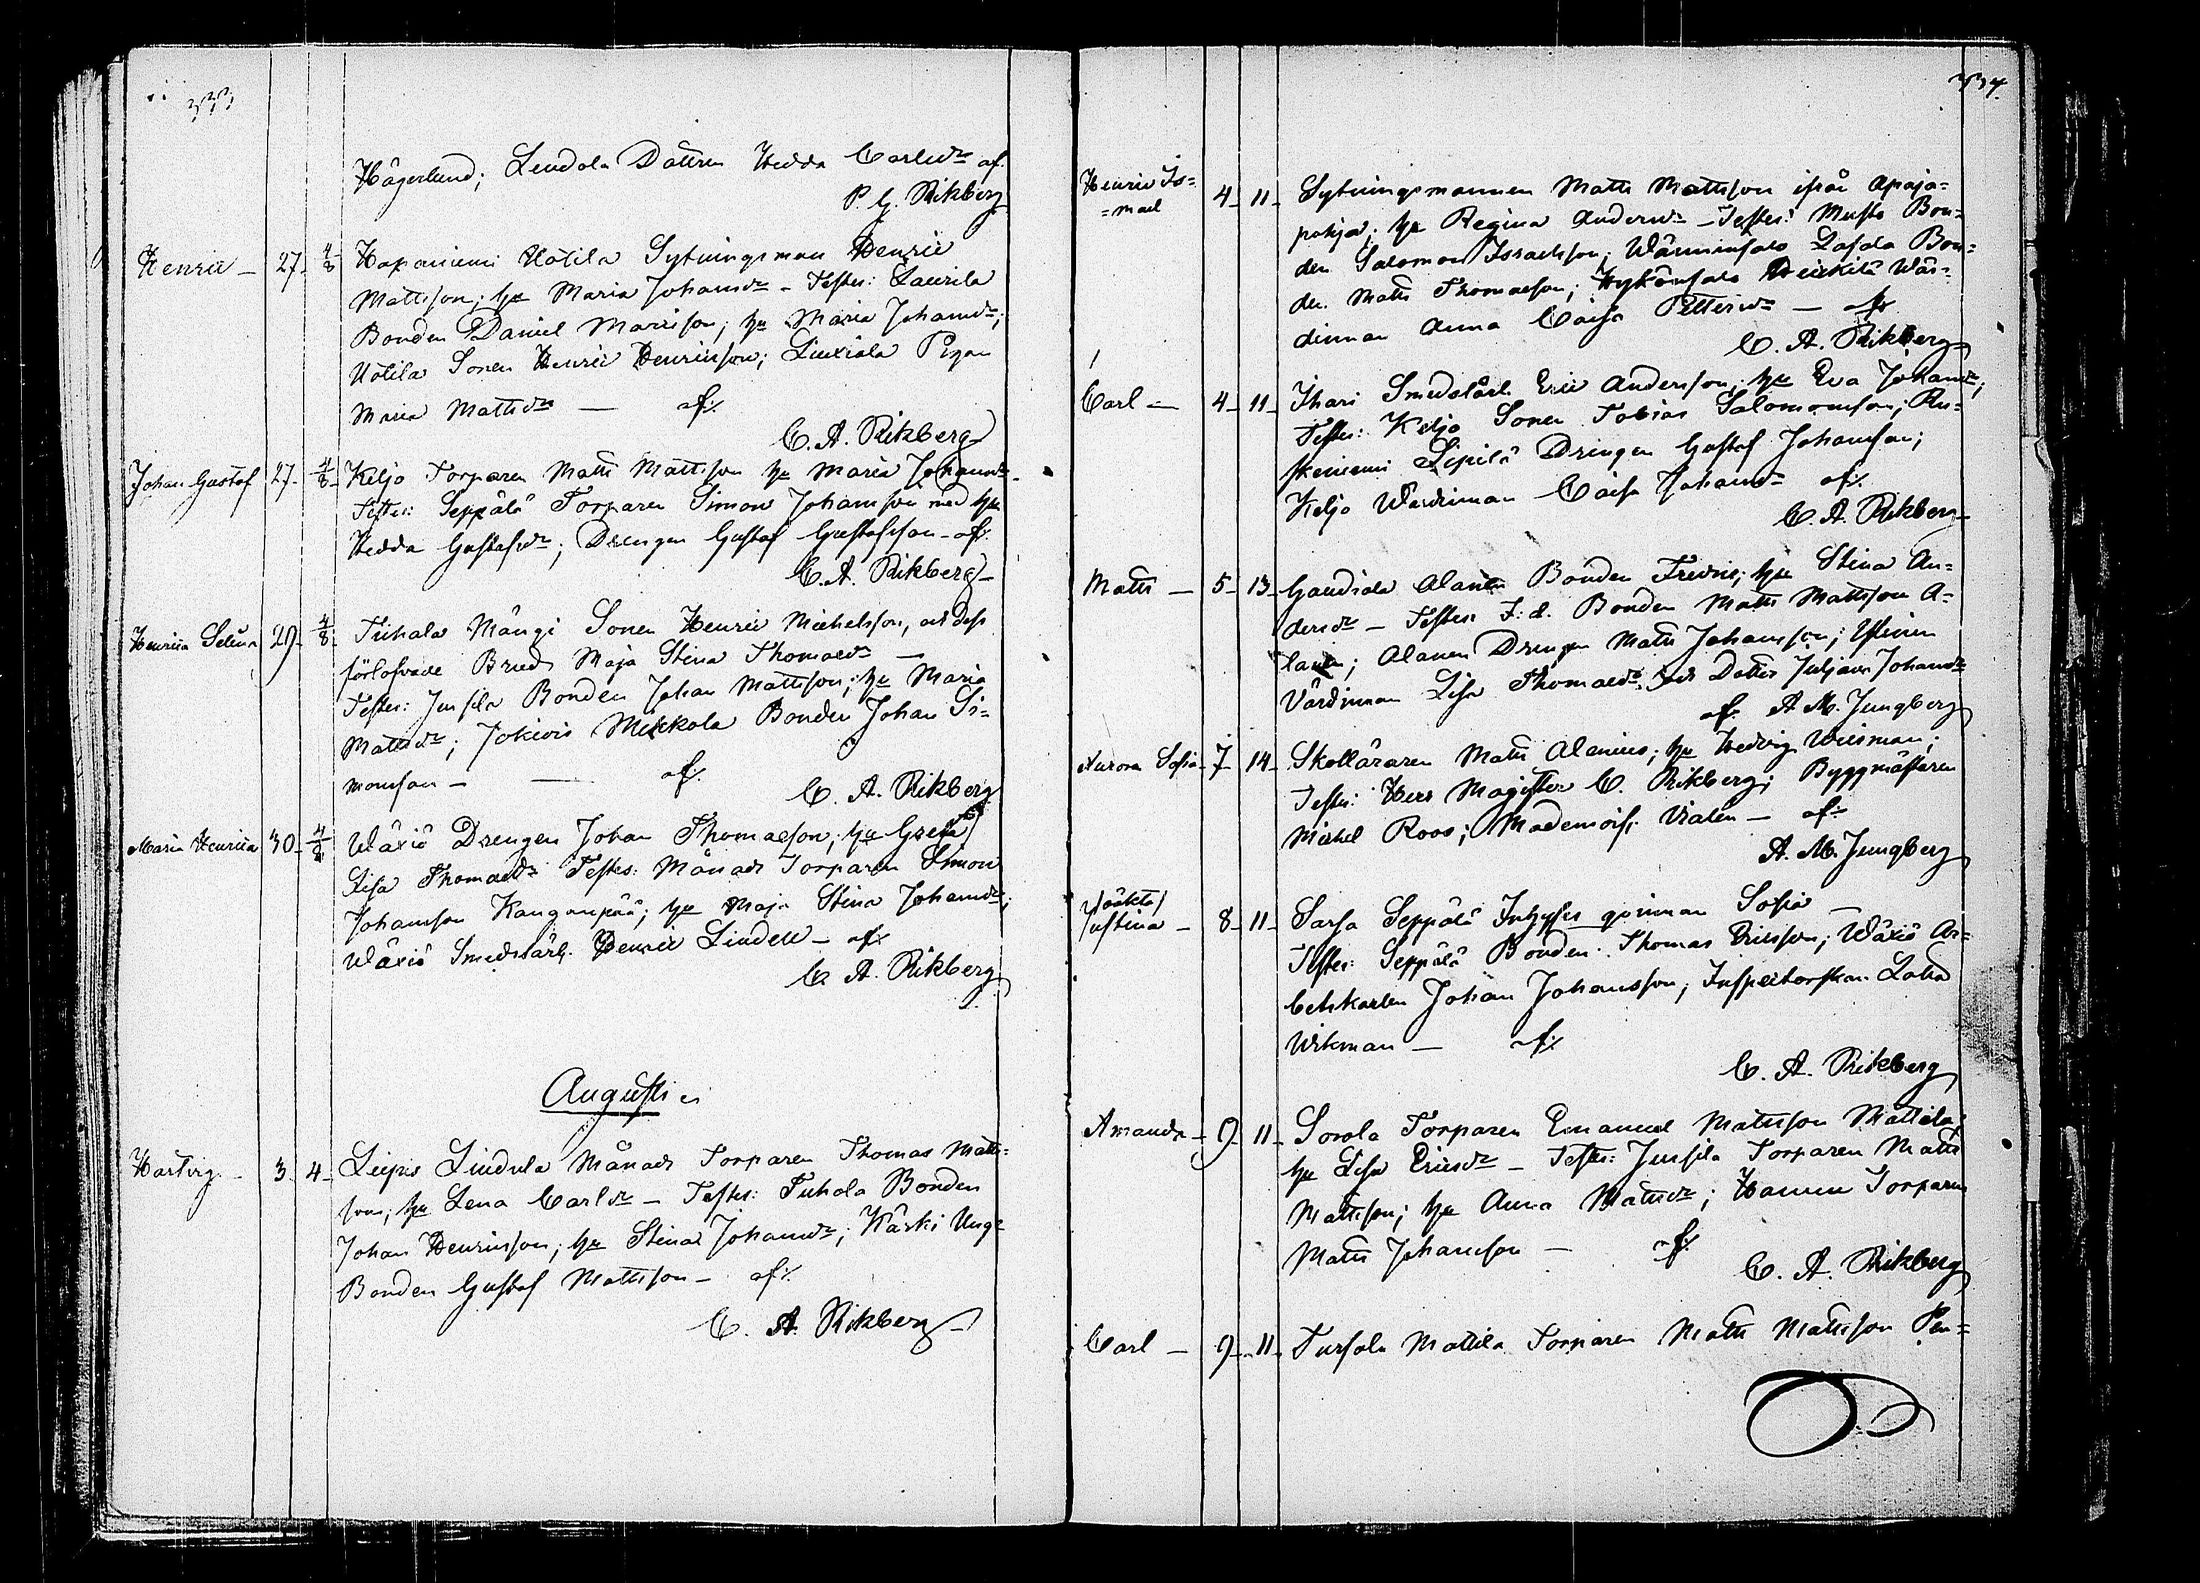 333
Hägerlund; Lendola Dottren Hedda Carlsdr af.
P. G. Rikberg
Henric — 27. 4/8 Hapaniemi Uotila Sytningsman Henric
Mattsson; hu Maria Johansdr - Testes: Laurila
Bonden Daniel Marison; hu Maria Johansdr;
Uotila Sonen Henric Henricsson; Liuxiala Pigan
Maria Mattsdr — af.
C. A. Rikberg
Johan Gustaf 27. 4/8 Keljo Torparen Matts Mattsson hu Maria Johansdr.
Testes: Seppälä Torparen Simon Johansson med hu
Hedda Gustafsdr; Drengen Gustaf Gustafsson - af.
C. A. Rikberg
Henrica Selina 29. 4/8 Tiihala Mångi Sonen Henric Michelsson, och Dess
förlofvade Brud Maja Stina Thomasdr —
Testes: Jussila Bonden Johan Mattsson; hu Maria
Mattsdr; Jokiois Mekkola Bonden Johan Si=
monsson — — af.
C. A. Rikberg
Maria Henrica 30. 4/8 Wäxiö Drengen Johan Thomasson; hu Greta
Lisa Thomasdr Testes: Månads Torparen Simon
Johansson Kanganpää; hu Maja Stina Johansdr;
Wäxiö Smedslärl. Henric Lindell — af.
C. A. Rikberg
Augusti
Hartvig — 3. 4. Liepis Lindula Månads Torparen Thomas Matts=
son; hu Lena Carlsdr — Testes: Tuhola Bonden
Johan Henricsson; hu Stina Johansdr; Käski Ung=
Bonden Gustaf Mattsson — af.
C. A. Rikberg
334.
Henric Is=
=mael 4. 11. Sytningsmannen Matts Mattsson ifrån Apaja=
pohja; hu Regina Andersdr — Testes: Musto Bon=
den Salomon Issachsson; Wänninsalo Dafala Bon=
den Matts Thomasson; Hykönsalo Heickilä Wär=
dinnan Anna Caisa Pettersdr — af.
C. A. Rikberg
Carl — 4. 11. Ihari Smedslärl. Eric Andersson; hu Eva Johansdr;
Testes: Keljo Sonen Tobias Salomonsson; Ru=
skeniemi Sipilä Drengen Gustaf Johansson;
Keljo Wärdinnan Caisa Johansdr af.
C. A. Rikberg
Matts — 5. 13. Gaudiala Alanen Bonden Fredric; hu Stina An=
dersdr — Testes F: d. Bonden Matts Mattsson A=
lanen; Alanen Drengen Matts Johansson;
Värdinnan Lisa Thomasdr och Dotter Juljana Johansdr
af. A. M. Jungberg
Aurora Sofia 7. 14. Skolläraren Matts Alenius; hu Hedvig Wiisman;
Testes: Herr Magister C. Rikberg; Byggmästaren
Michel Roos; Mademois: Vialén — af.
A. M. Jungberg
/oäkta/
Justina — 8. 11. Sarsa Seppälä Inhyses qvinnan Sofia —
Testes: Seppälä Bonden Thomas Ericsson; Wäxiö Ar=
betskarlen Johan Johansson; Inspectorskan Lovisa
Wikman — af.
C. A. Rikberg
Amanda — 9. 11. Sorola Torparen Emanuel Mattsson Mattila;
hu Lisa Ericsdr — Testes: Jussila Torparen Matts
Mattsson; hu Anna Mattsdr; Torparen
Matts Johansson — af.
C. A. Rikberg
Carl — 9. 11. Tursola Mattila Torparen Matts Mattsson Pen=